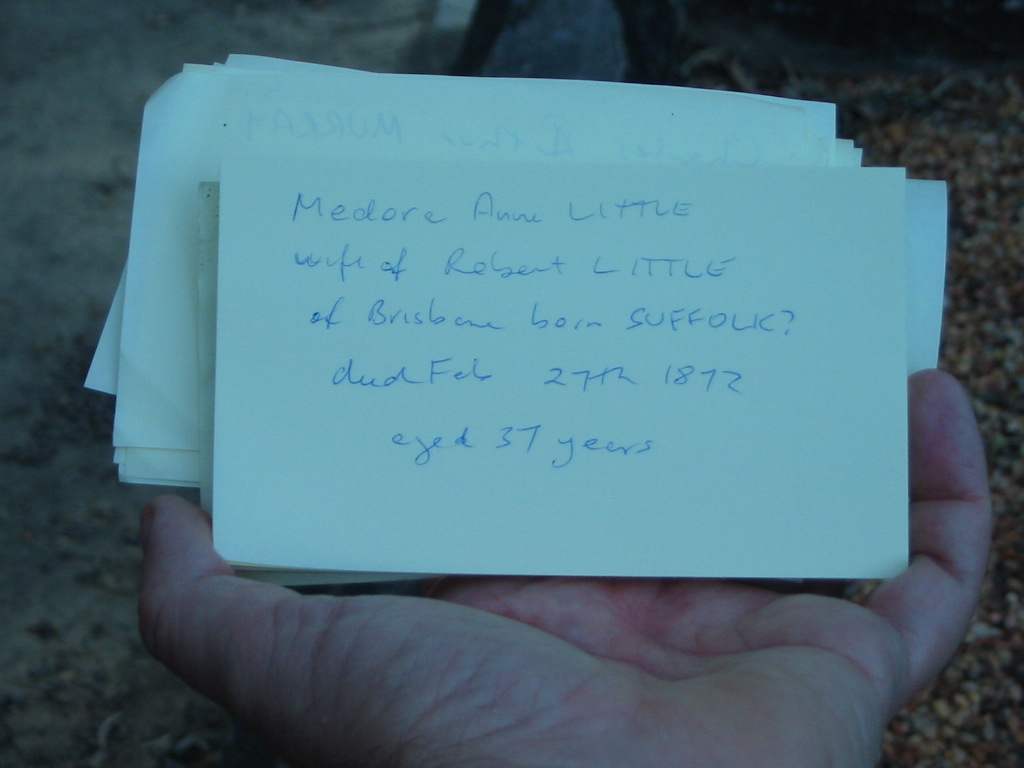 Charles Arthur MURRAY
Medora Anne LITTLE
wife of Robert LITTLE
of Brisbane born SUFFOLK?
died Feb 27th 1872
aged 37 years